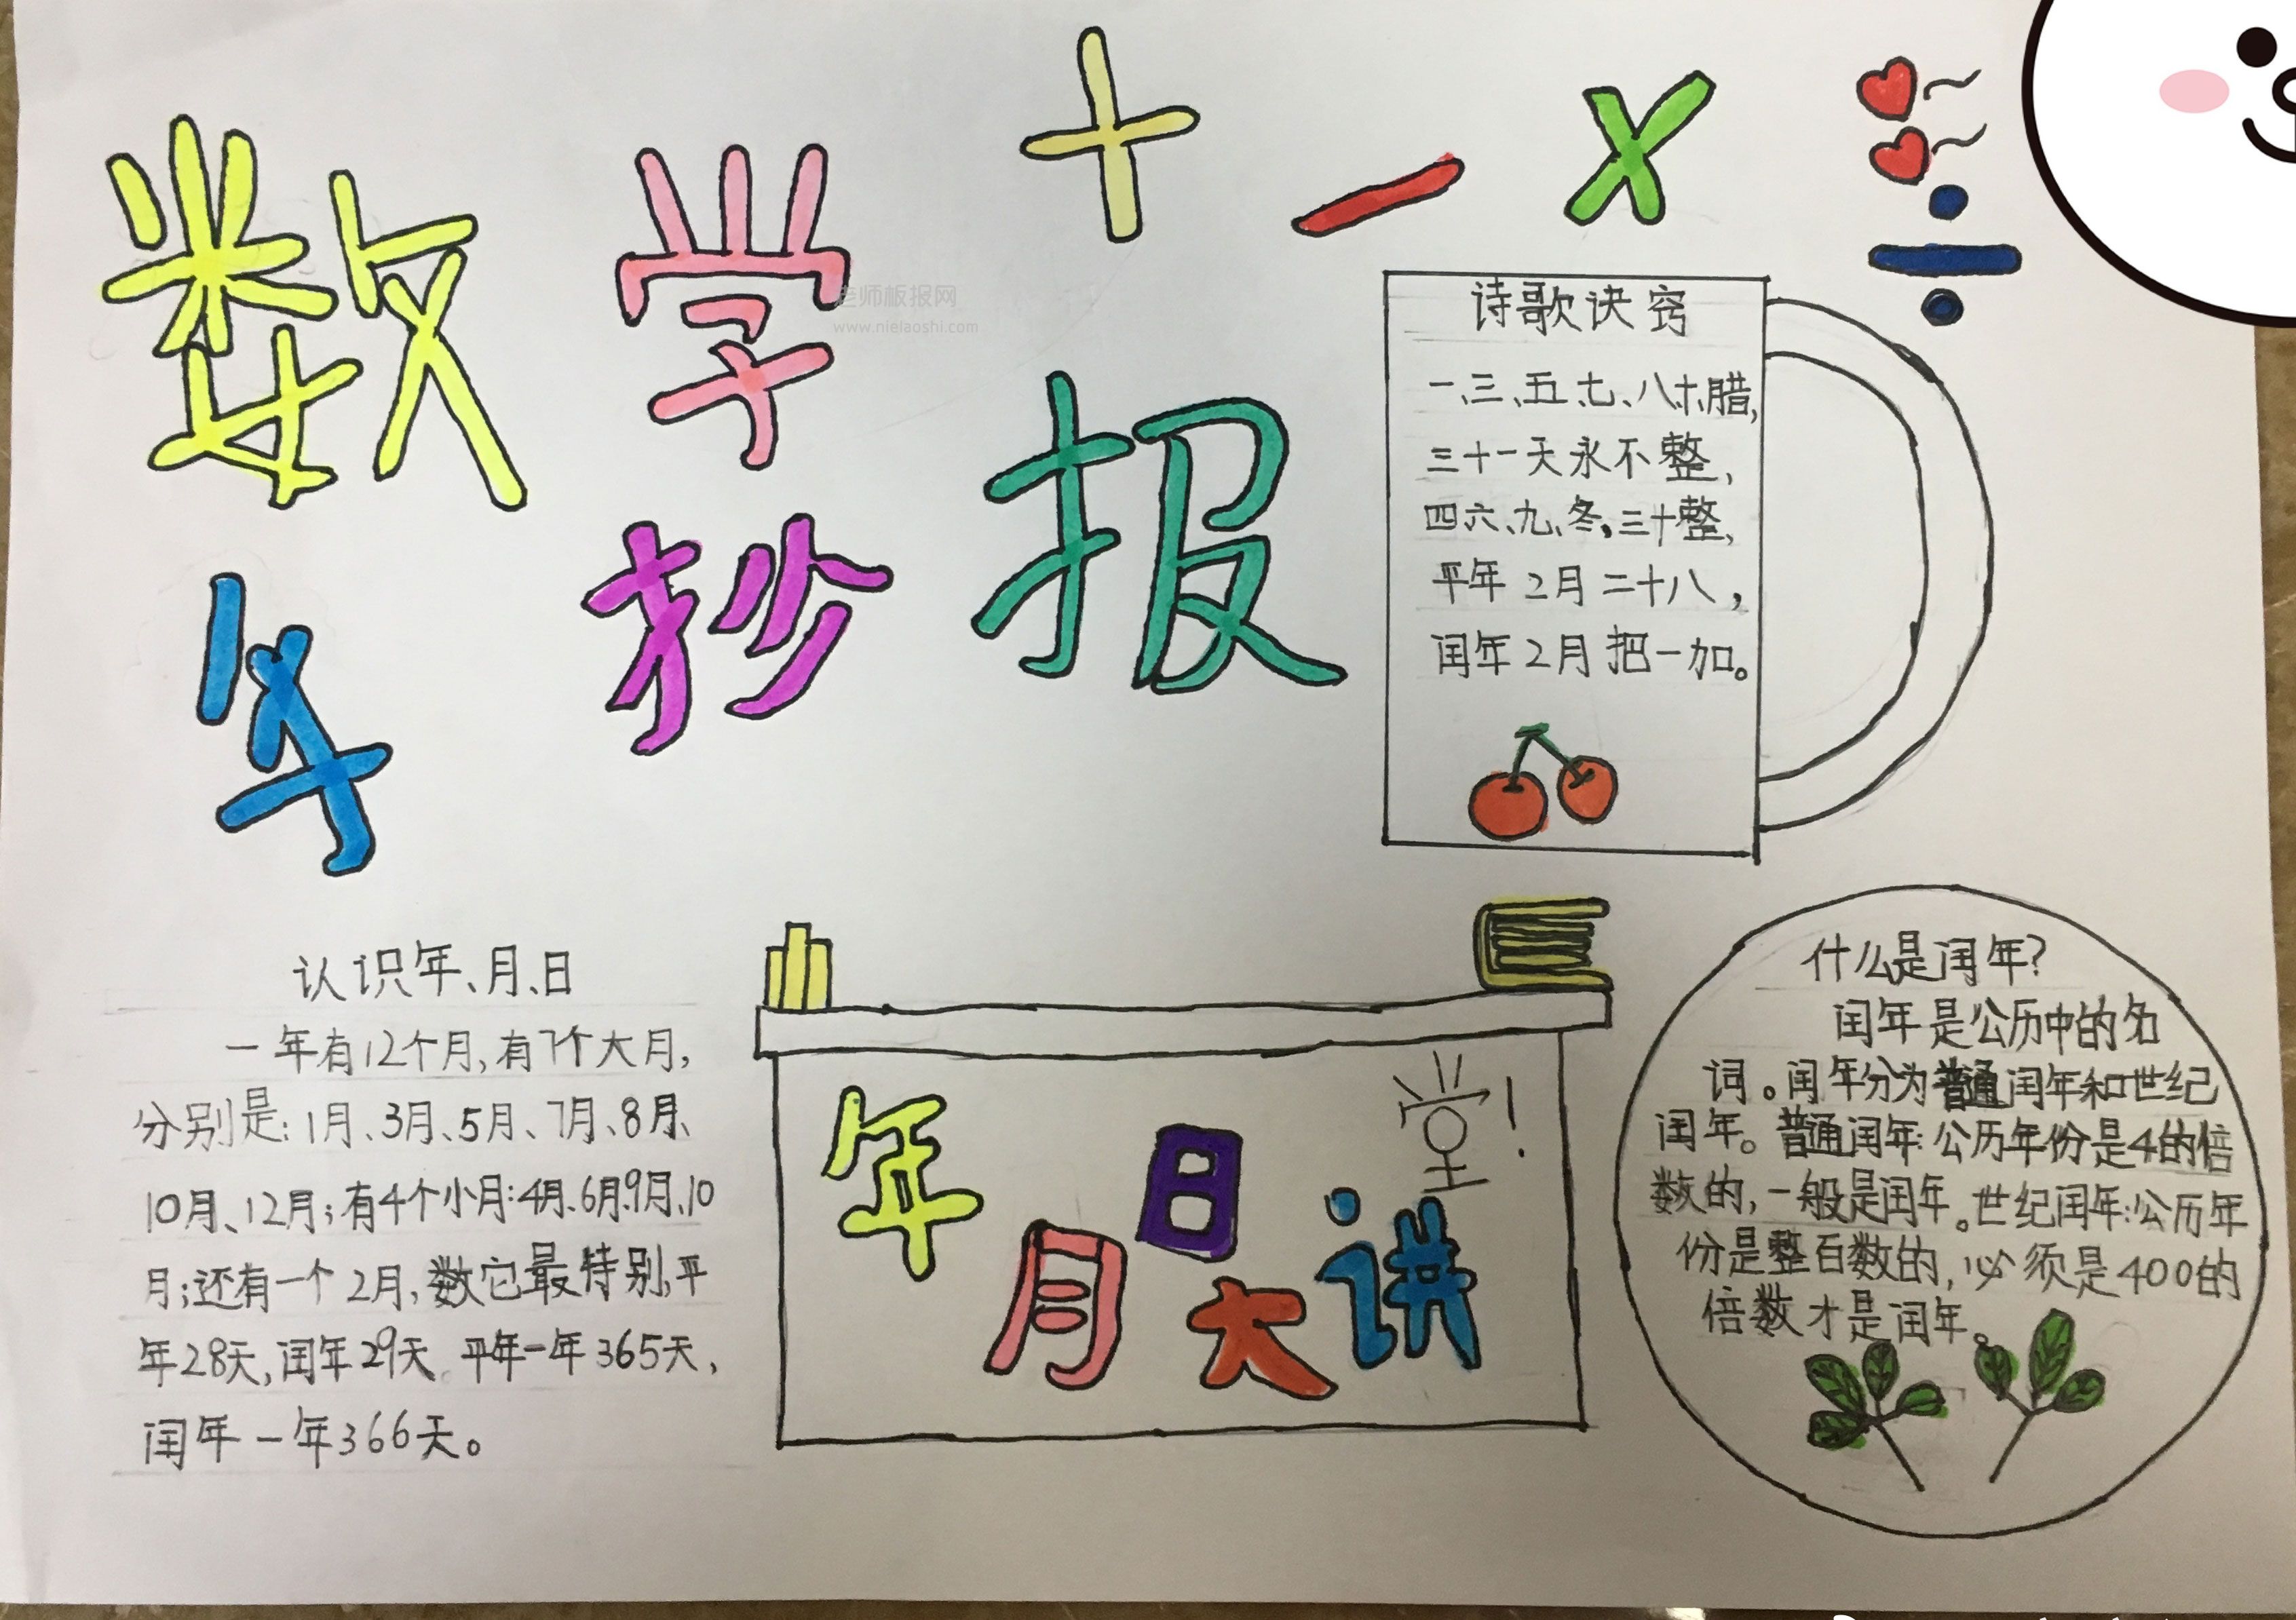 数学
手抄报
+ - × ÷
老师板报网
www.nielaoshi.com
诗歌诀窍
一、三、五、七、八、十、腊,
三十一天永不整,
四六、九、冬,三十整,
平年2月二十八,
闰年2月把一加。
认识年、月、日
一年有12个月,有7个大月,
分别是:1月、3月、5月、7月、8月、
10月、12月;有4个小月:4月、6月、9月、10
月;还有一个2月,数它最特别,平
年28天,闰年29天。平年一年365天,
闰年一年366天。
年月日大讲堂!
什么是闰年?
闰年是公历中的名
词。闰年分为普通闰年和世纪
闰年。普通闰年:公历年份是4的倍
数的,一般是闰年。世纪闰年:公历年
份是整百数的,必须是400的
倍数才是闰年。